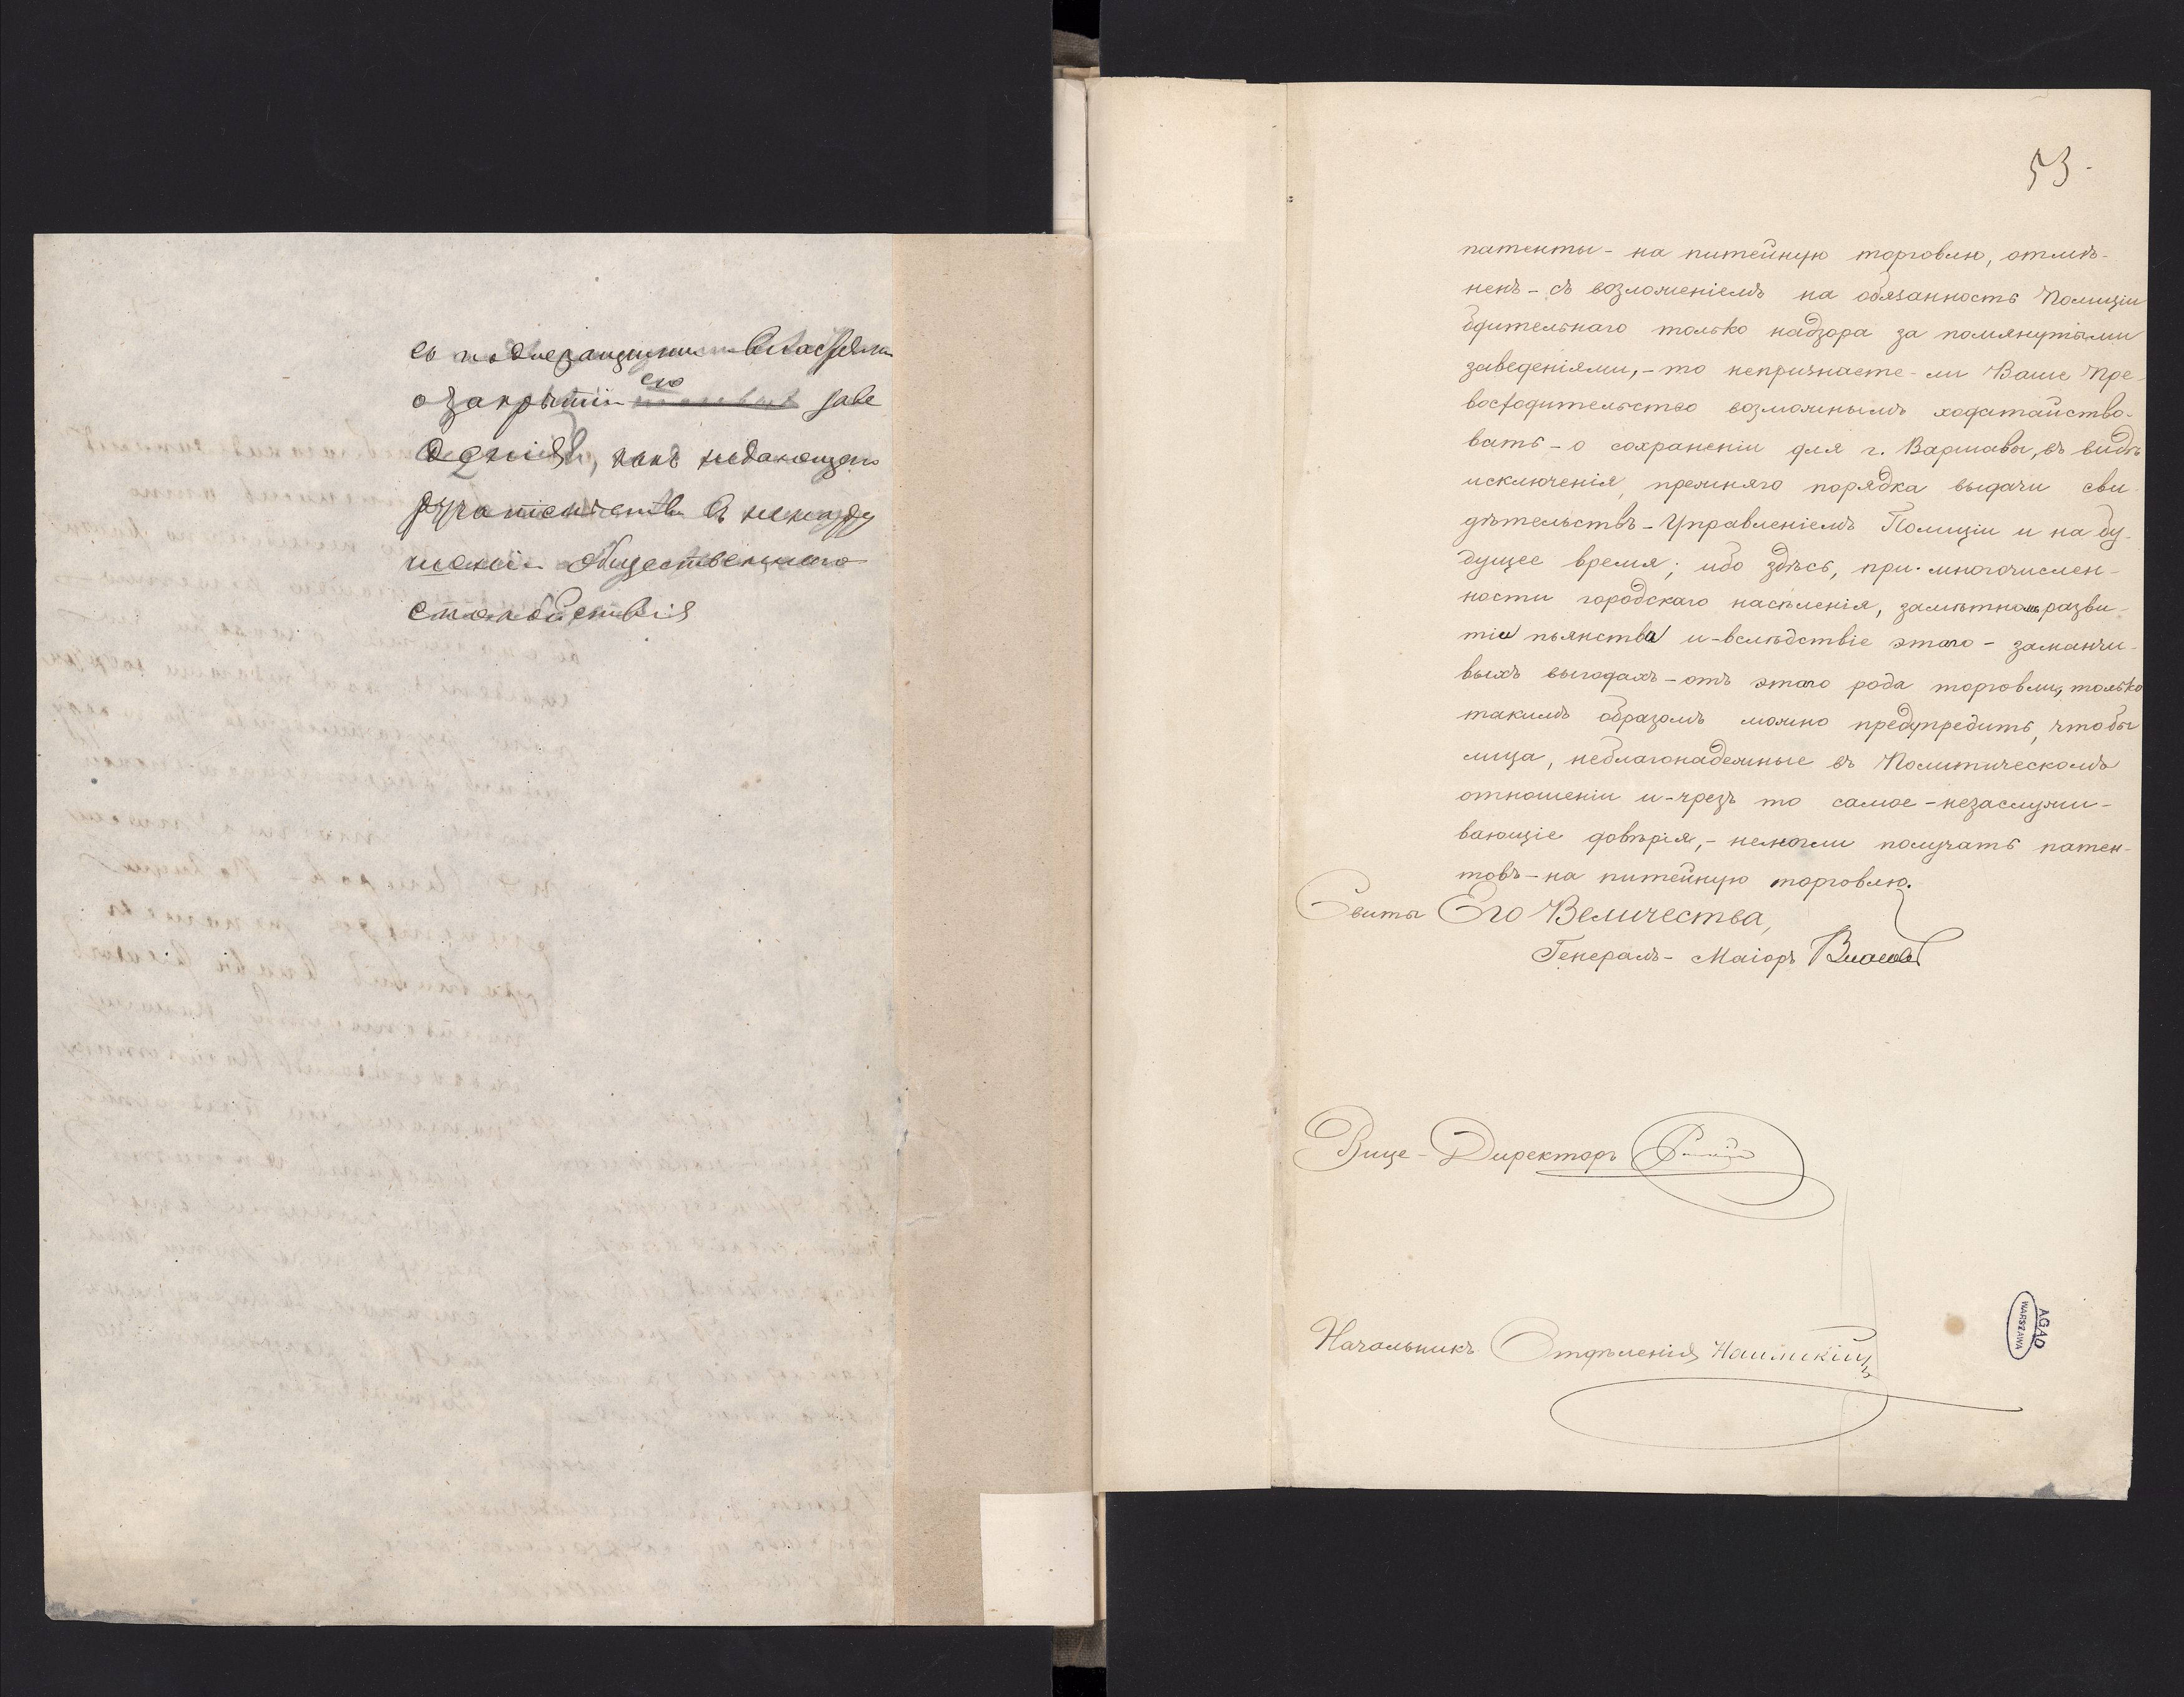 съ подлежащими властями
о закрытіи его заве
денія, какъ недающаго
ручательства въ ненару
шеніи общественнаго
спокойствія
53-
патенты - на питейную торговлю, отмѣ-
ненъ - съ возложеніемъ на обязанность Полиціи
бдительнаго только надзора за помянутыми
заведеніями, - то непризнаете-ли Ваше Пре-
восходительство возможнымъ ходатайство-
вать - о сохраненіи для г. Варшавы, въ видѣ
исключенія, прежняго порядка выдачи сви-
дѣтельствъ - Управленіемъ Полиціи и на бу-
дущее время; ибо здѣсь, при многочислен-
ности городскаго населенія, замѣтномъ разви-
тіи пьянства и - вслѣдствіе этого - заманчи-
выхъ выгодахъ - отъ этого рода торговли, только
такимъ образомъ можно предупредить, чтобы
лица, неблагонадежные въ Политическомъ
отношеніи и - чрезъ то самое - незаслужи-
вающіе довѣрія, - немогли получать патен-
товъ - на питейную торговлю.
Свиты Его Величества,
Генералъ-Маіоръ Власовъ
Вице-Директоръ
Начальникъ Отдѣленія
AGAD
WARSZAWA